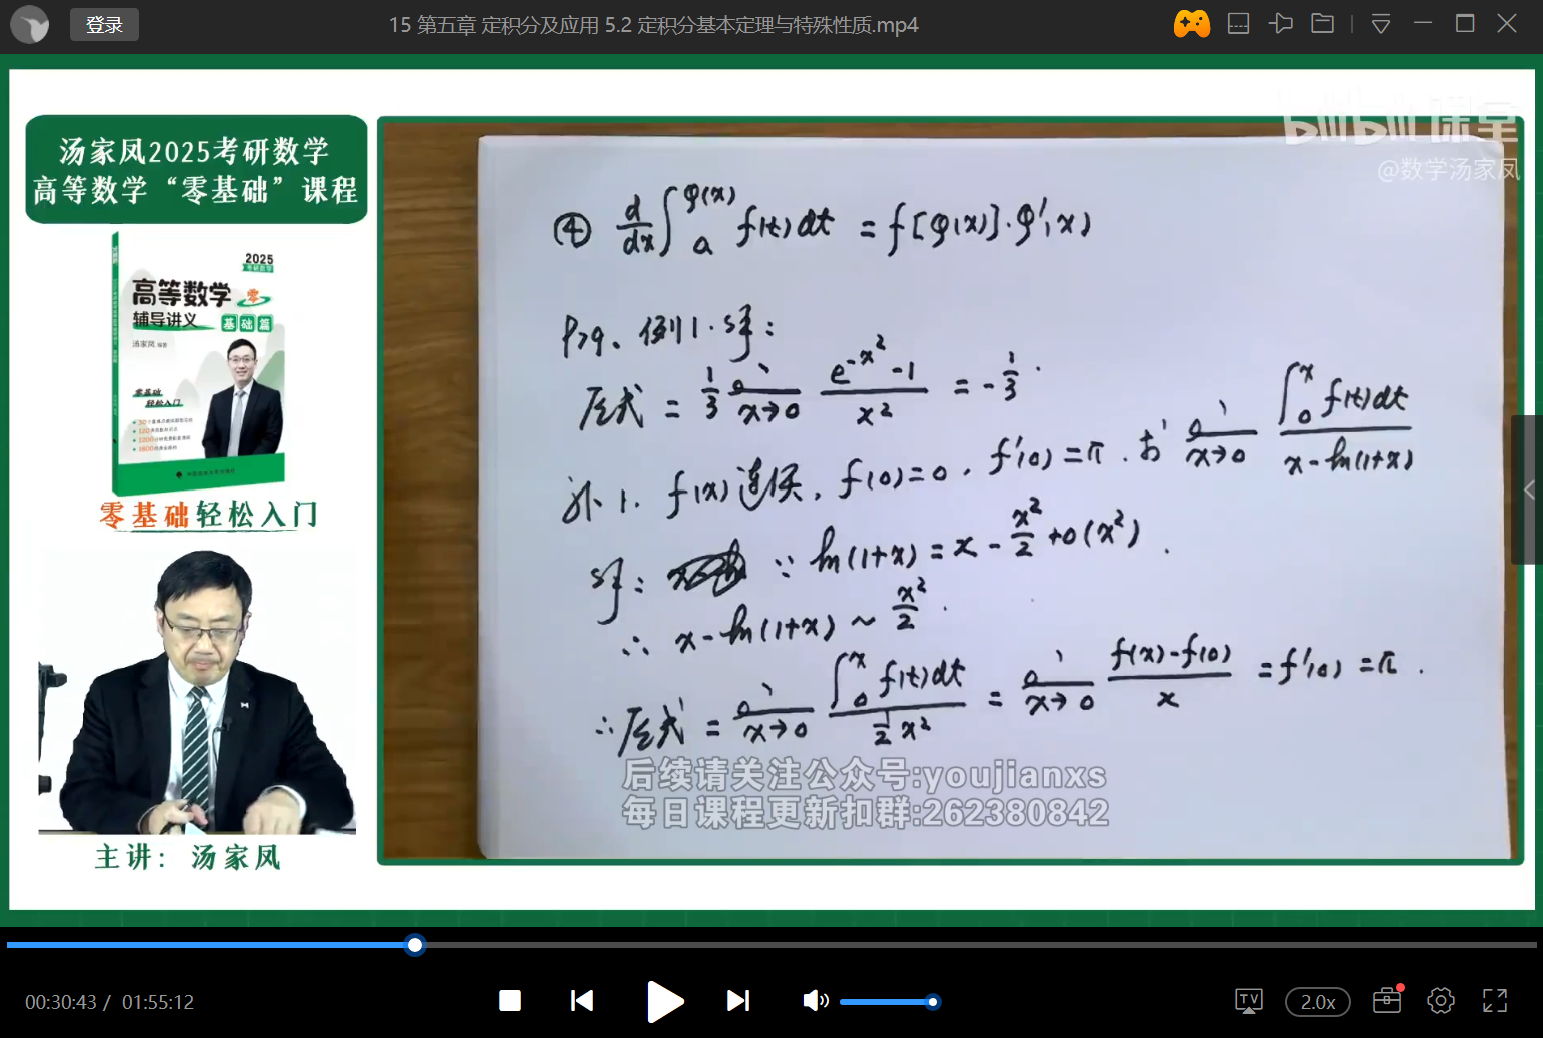 登录
15 第五章 定积分及应用 5.2 定积分基本定理与特殊性质.mp4
汤家凤2025考研数学
高等数学“零基础”课程
2025
考研数学
高等数学 零
辅导讲义 基础篇
汤家凤 编著
零基础
轻松入门
零基础轻松入门
主讲: 汤家凤
bilibili 课堂
@数学汤家凤
④ d/dx ∫_a^φ(x) f(t)dt = f[φ(x)]·φ'(x)
P79、例1. 解:
原式 = 1/3 lim x→0 (e^(-x²) -1)/x² = -1/3.
补1. f(x)连续, f(0)=0, f'(0)=π. 求 lim x→0 ∫_0^x f(t)dt / (x-ln(1+x))
解: ∵ ln(1+x) = x - x²/2 + o(x²).
∴ x-ln(1+x) ~ x²/2.
∴ 原式 = lim x→0 ∫_0^x f(t)dt / (1/2 x²) = lim x→0 (f(x)-f(0))/x = f'(0) = π.
后续请关注公众号:youjianxs
每日课程更新扣群:262380842
00:30:43 / 01:55:12
TV
2.0x